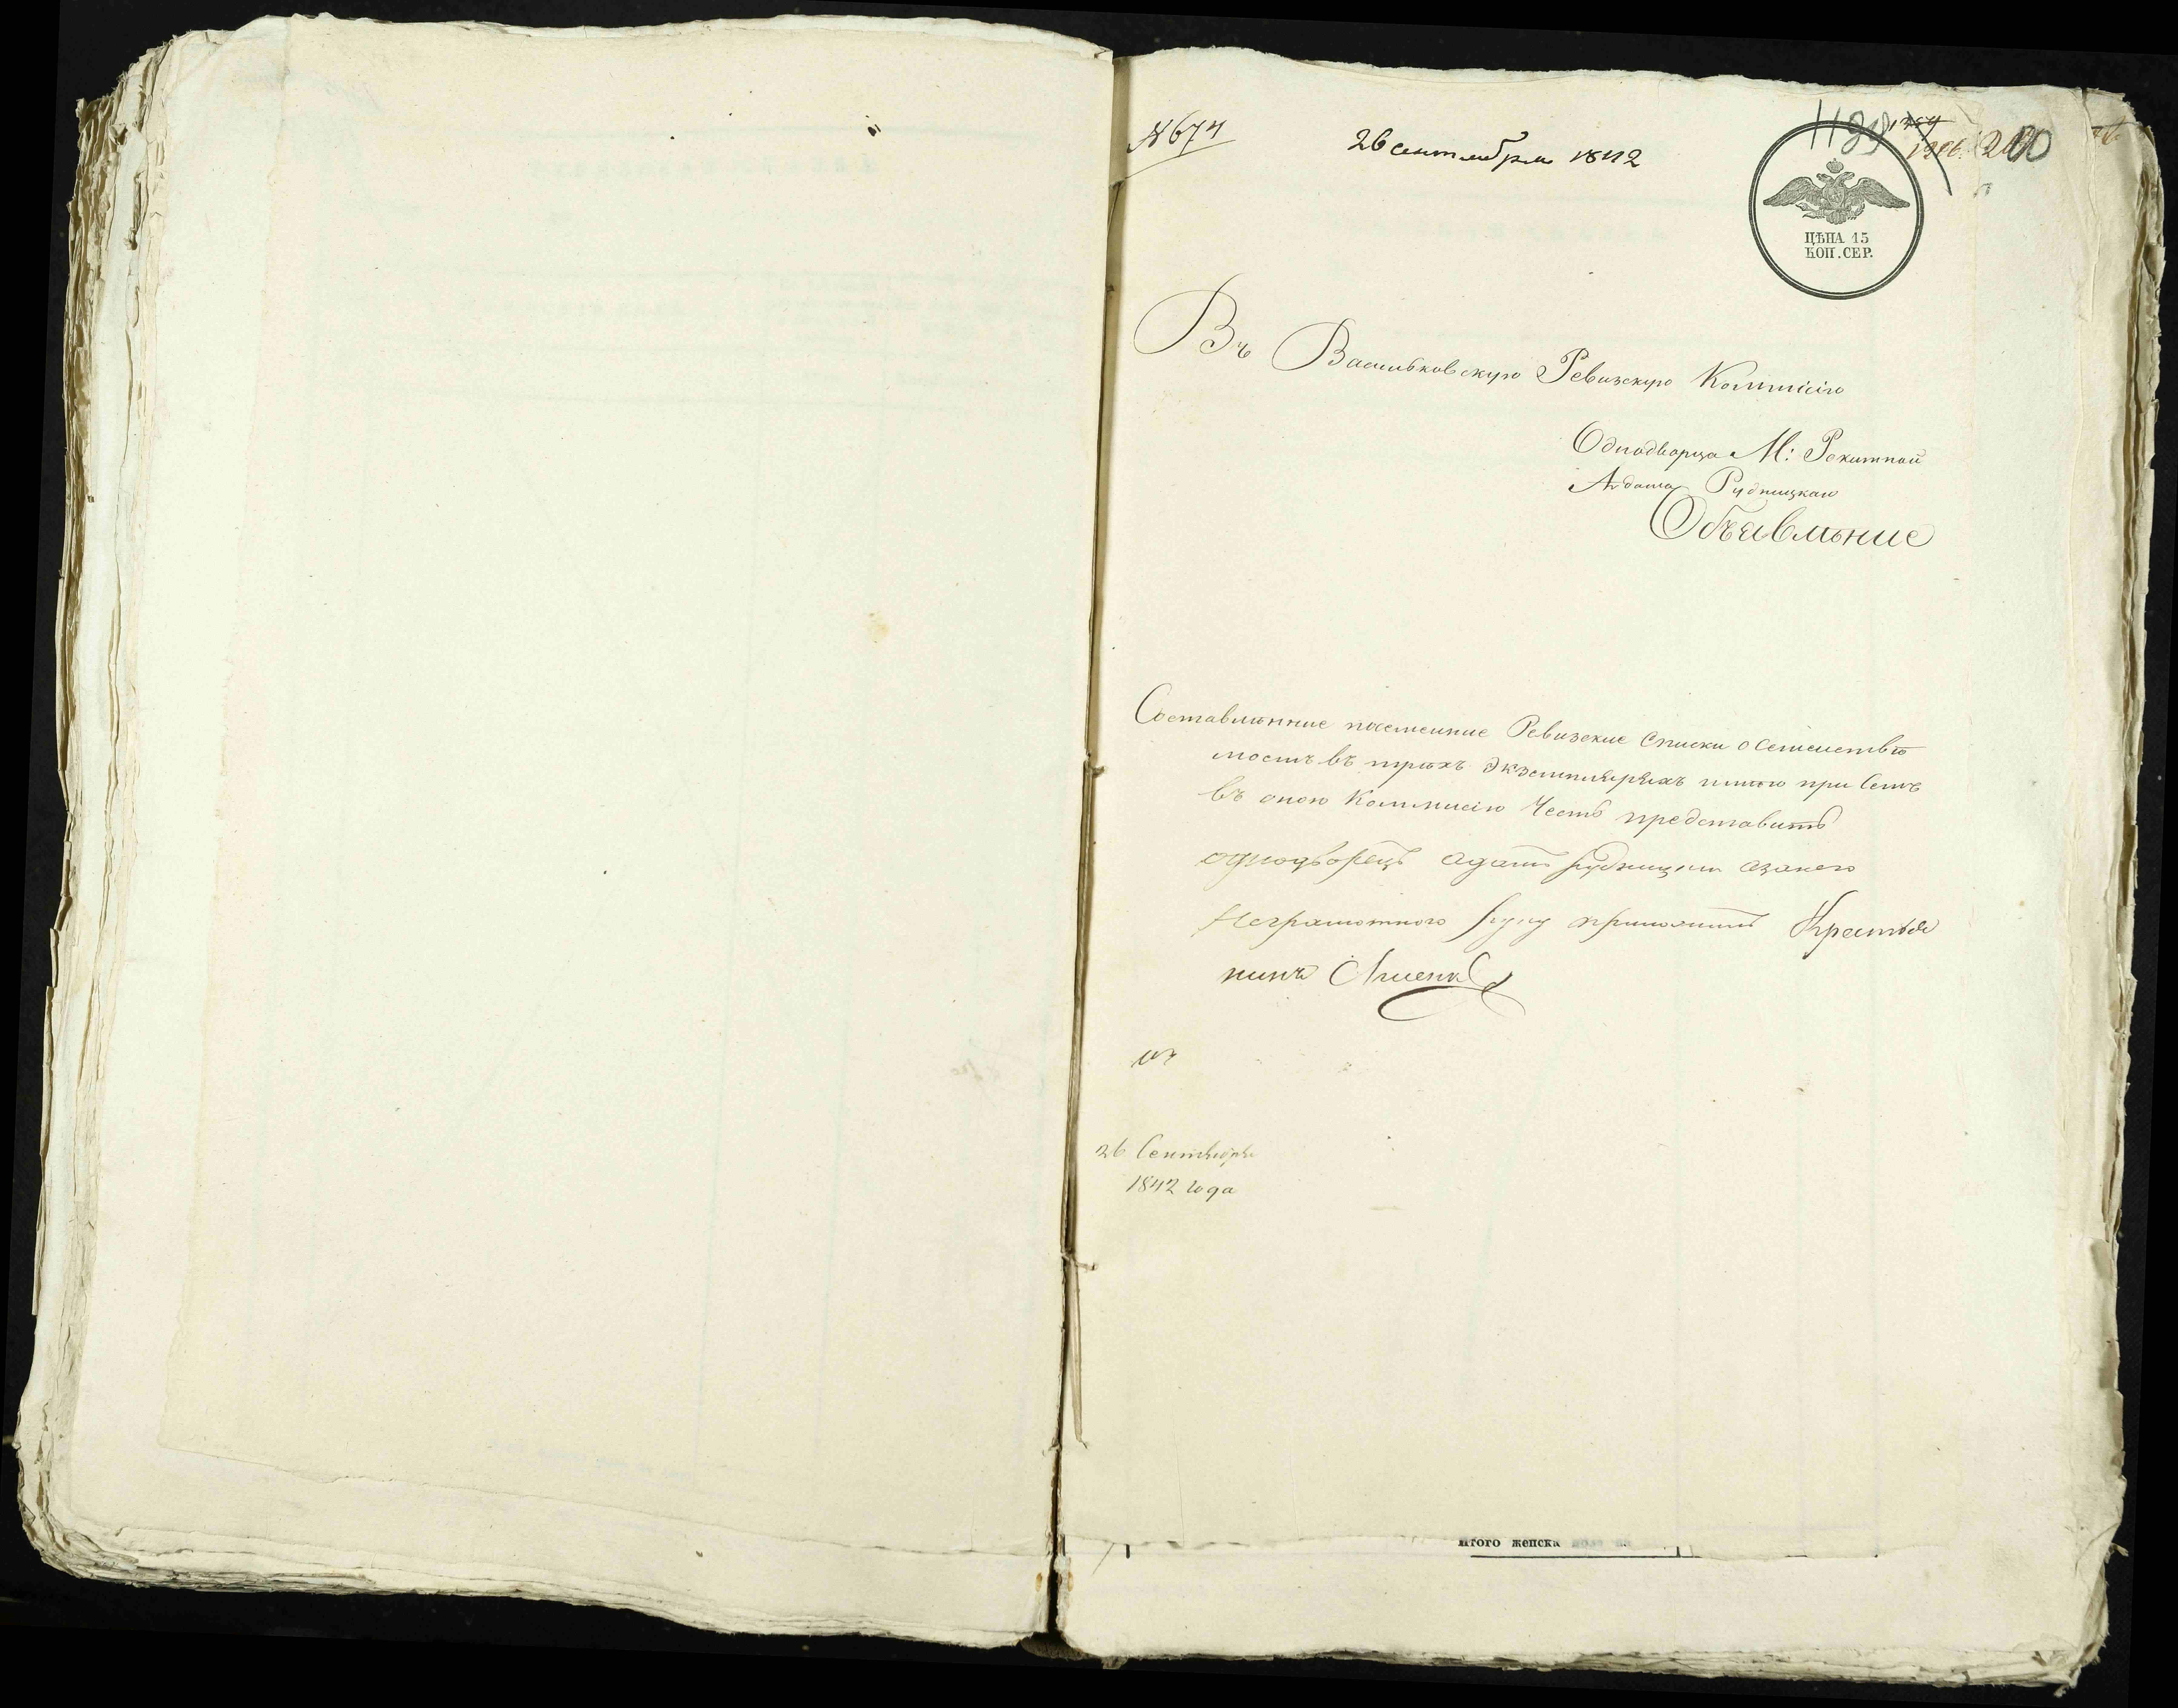 № 674
26 сентября 1842
1199
200
ЦѢНА 15
КОП. СЕР.
Въ Васильковскую Ревизскую Коммисію
Однодворца М: Рокитной
Адама Рудницкаго
Объявленіе
Составленние посемейние Ревизские списки о Семействѣ
моемъ въ трехъ Экземплярахъ имѣю при Семъ
въ оною Коммисію Честь представить
однодворецъ адамъ рудницки азанего
Неграмотного руку приложилъ Крестья
нинъ
26 Сентября
1842 года
Итого женска